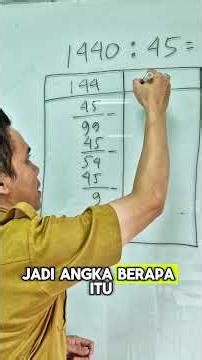 1440 : 45 =
144
45 -
99
45 -
54
45 -
9
JADI ANGKA BERAPA
ITU